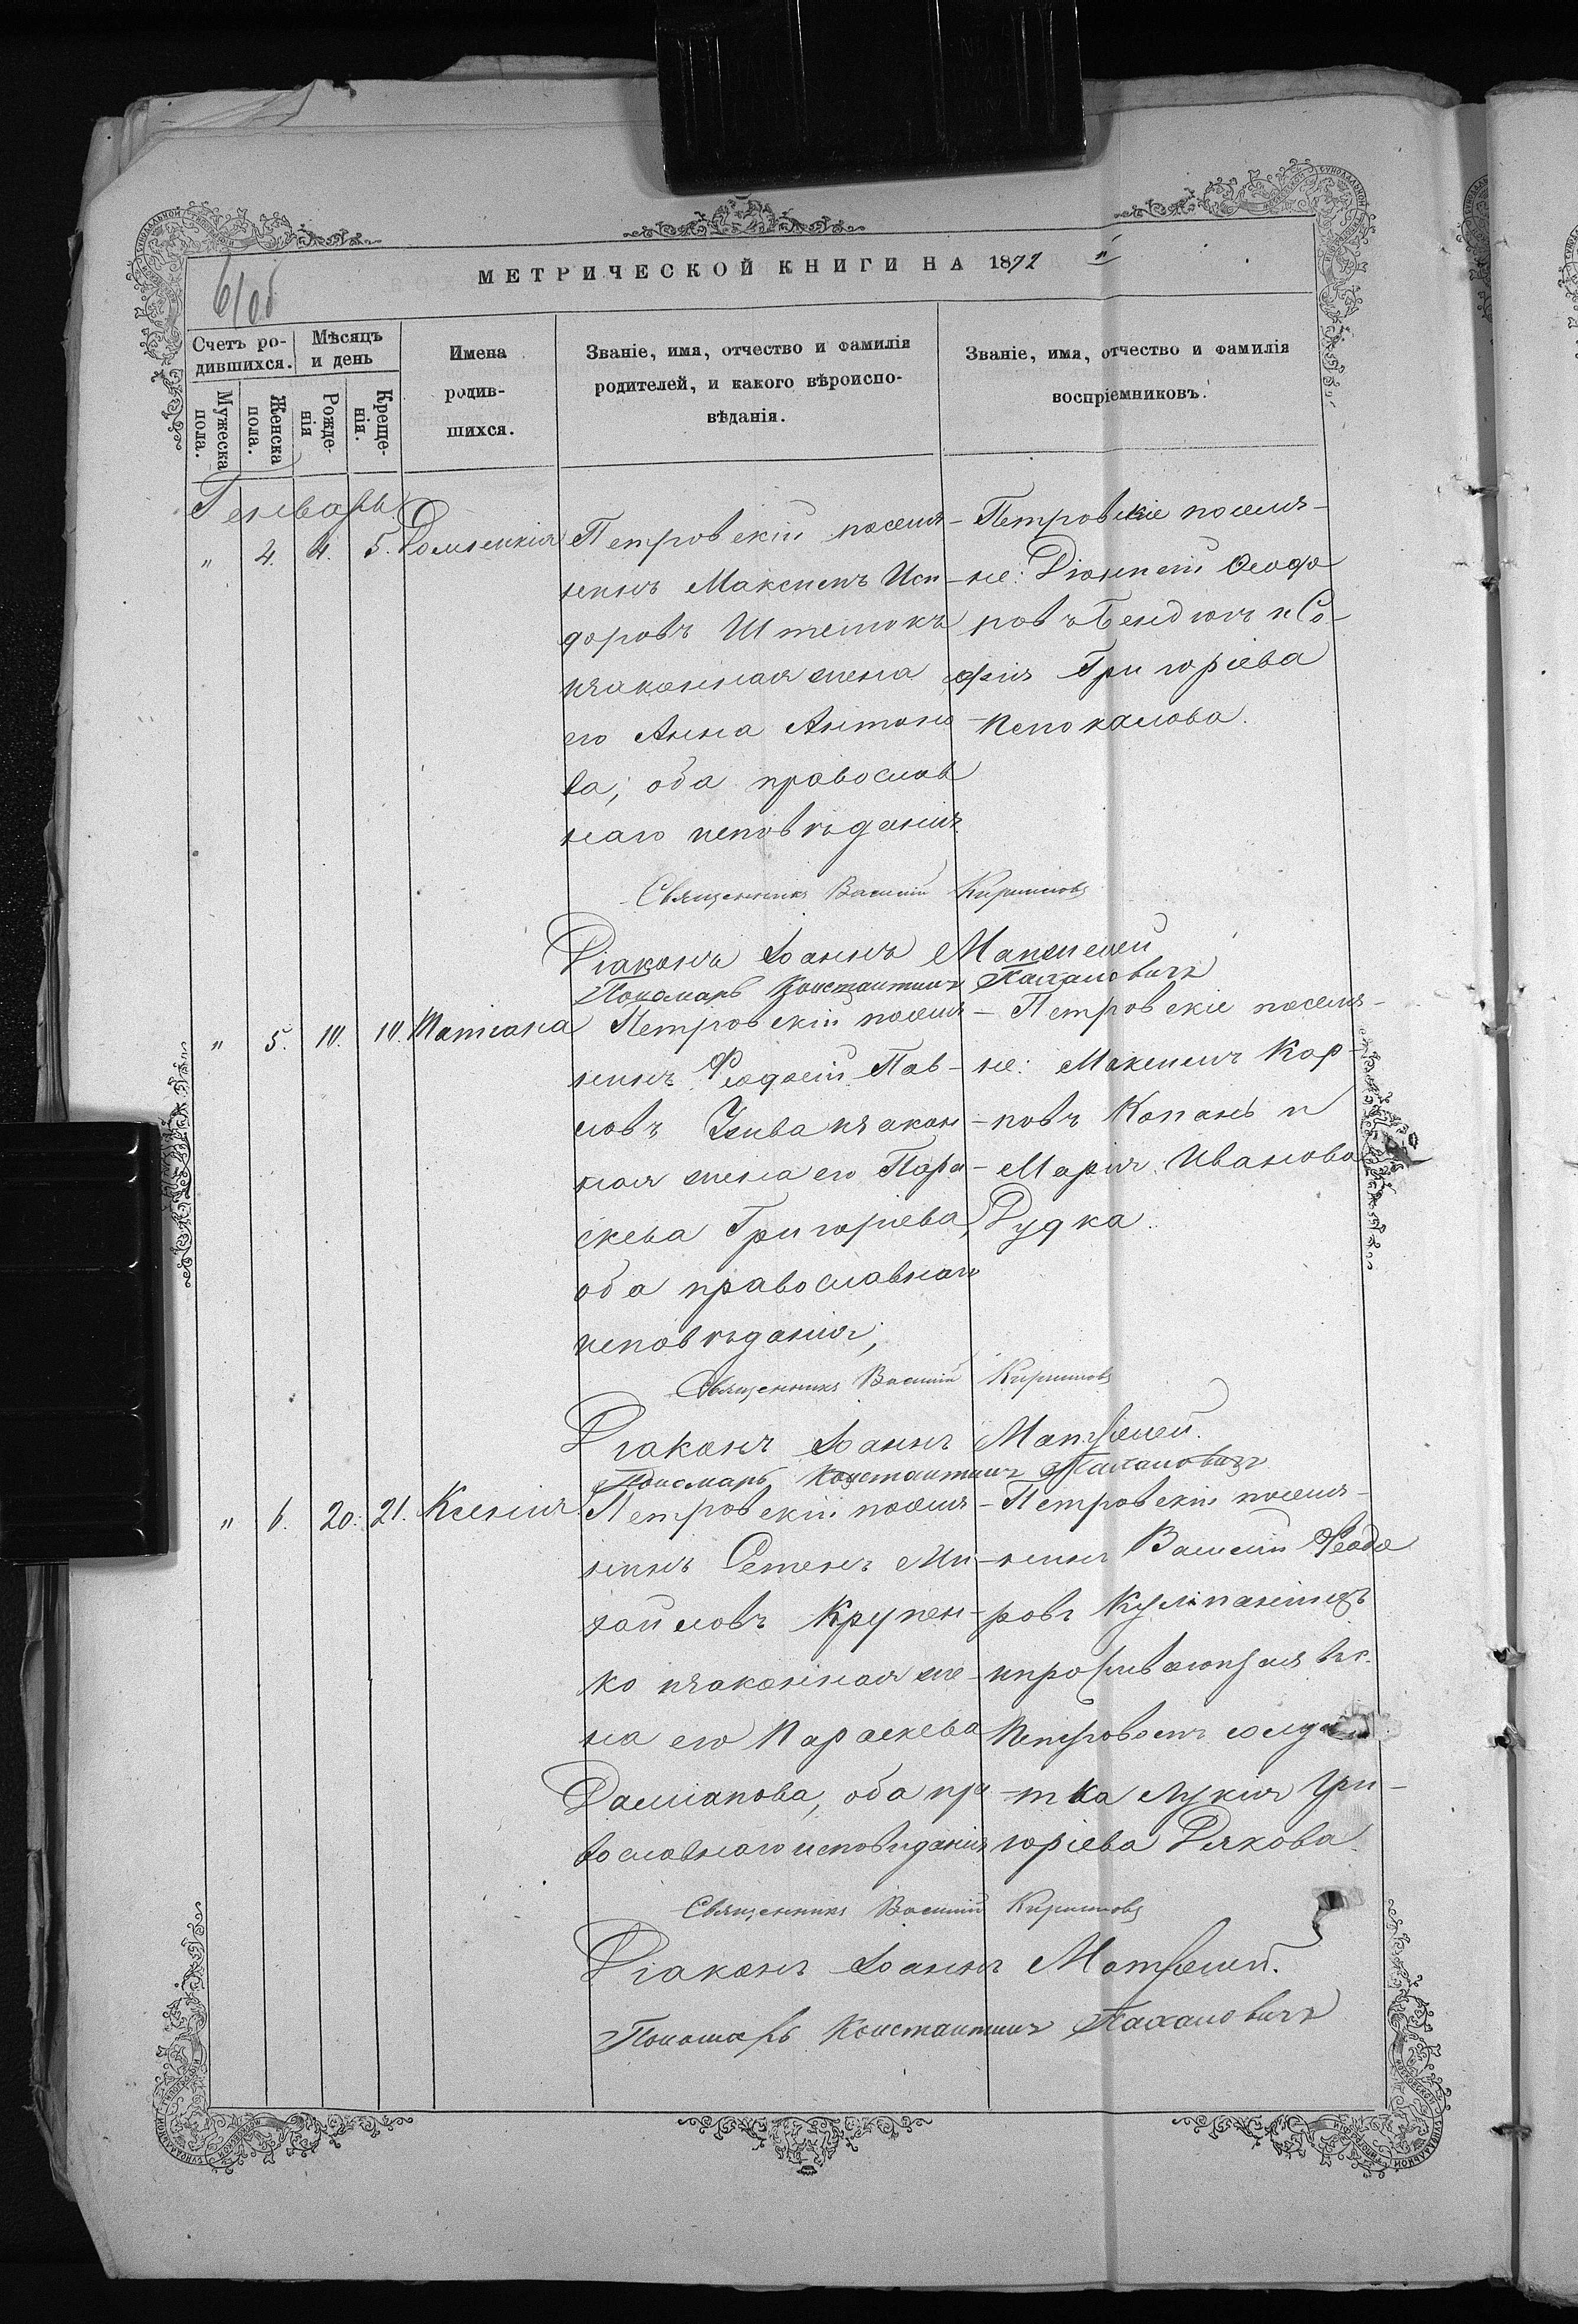 61об
МЕТРИЧЕСКОЙ КНИГИ НА 1872
Счетъ ро-
дившихся.
Мѣсяцъ
и день
Мужеска
пола.
Женска
пола.
Рожде-
нія
Креще-
нія.
Имена
родив-
шихся.
Званіе, имя, отчество и фамилія
родителей, и какого вѣроиспо-
вѣданія.
Званіе, имя, отчество и фамилія
воспріемниковъ.
Генварь
" 4. 4. 5. Домникія
Петровскій поселя-
нинъ Максимъ Иси-
доровъ
изаконная жена
его Анна Антоно-
ва, оба православ
наго исповѣданія.
Петровскіе поселя-
не: Діонисій Ѳеодо
ровъ и Со-
фія Григоріева
Священникъ Василій Кирилловъ
Діаконъ Іоаннъ
Пономарь Константинъ
" 5. 10. 10. Татіана
Петровскій поселя-
нинъ Ѳеодосій Пав-
ловъ изакон-
ная жена его Пара-
скева Григоріева,
оба православнаго
исповѣданія;
Петровскіе поселя-
не: Максимъ Кар-
повъ Копань и
Марія Иванова
Рудка.
Священникъ Василій Кирилловъ
Діаконъ Іоаннъ
Пономарь Константинъ
" 6. 20. 21. Ксенія
Петровскій поселя-
нинъ Семенъ Ми-
хайловъ Крупен-
ко изаконная же-
на его Параскева
Даміанова, оба пра
вославнаго исповѣданія
Петровскій поселя-
нинъ Василій Ѳеодо
ровъ
ипроживающая въ с.
Петровомъ солда
тка Лукія Гри-
горіева Дякова
Священникъ Василій Кирилловъ
Діаконъ Іоаннъ
Пономарь Константинъ